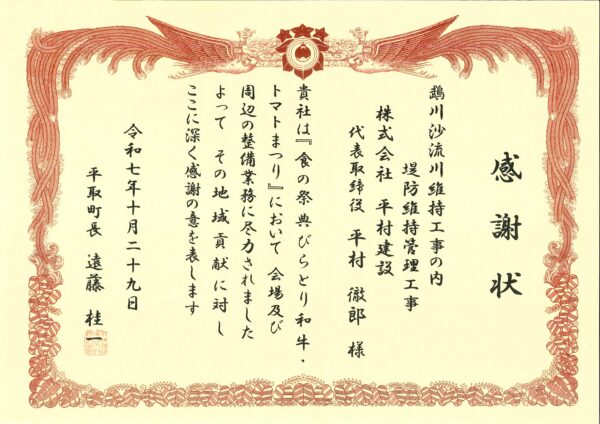 感謝状
鵡川沙流川維持工事の内
堤防維持管理工事
株式会社 平村建設
代表取締役 平村 徹郎 様
貴社は『食の祭典びらとり和牛・
トマトまつり』において 会場及び
周辺の整備業務に尽力されました
よって その地域貢献に対し
ここに深く感謝の意を表します
令和七年十月二十九日
平取町長 遠藤 桂一